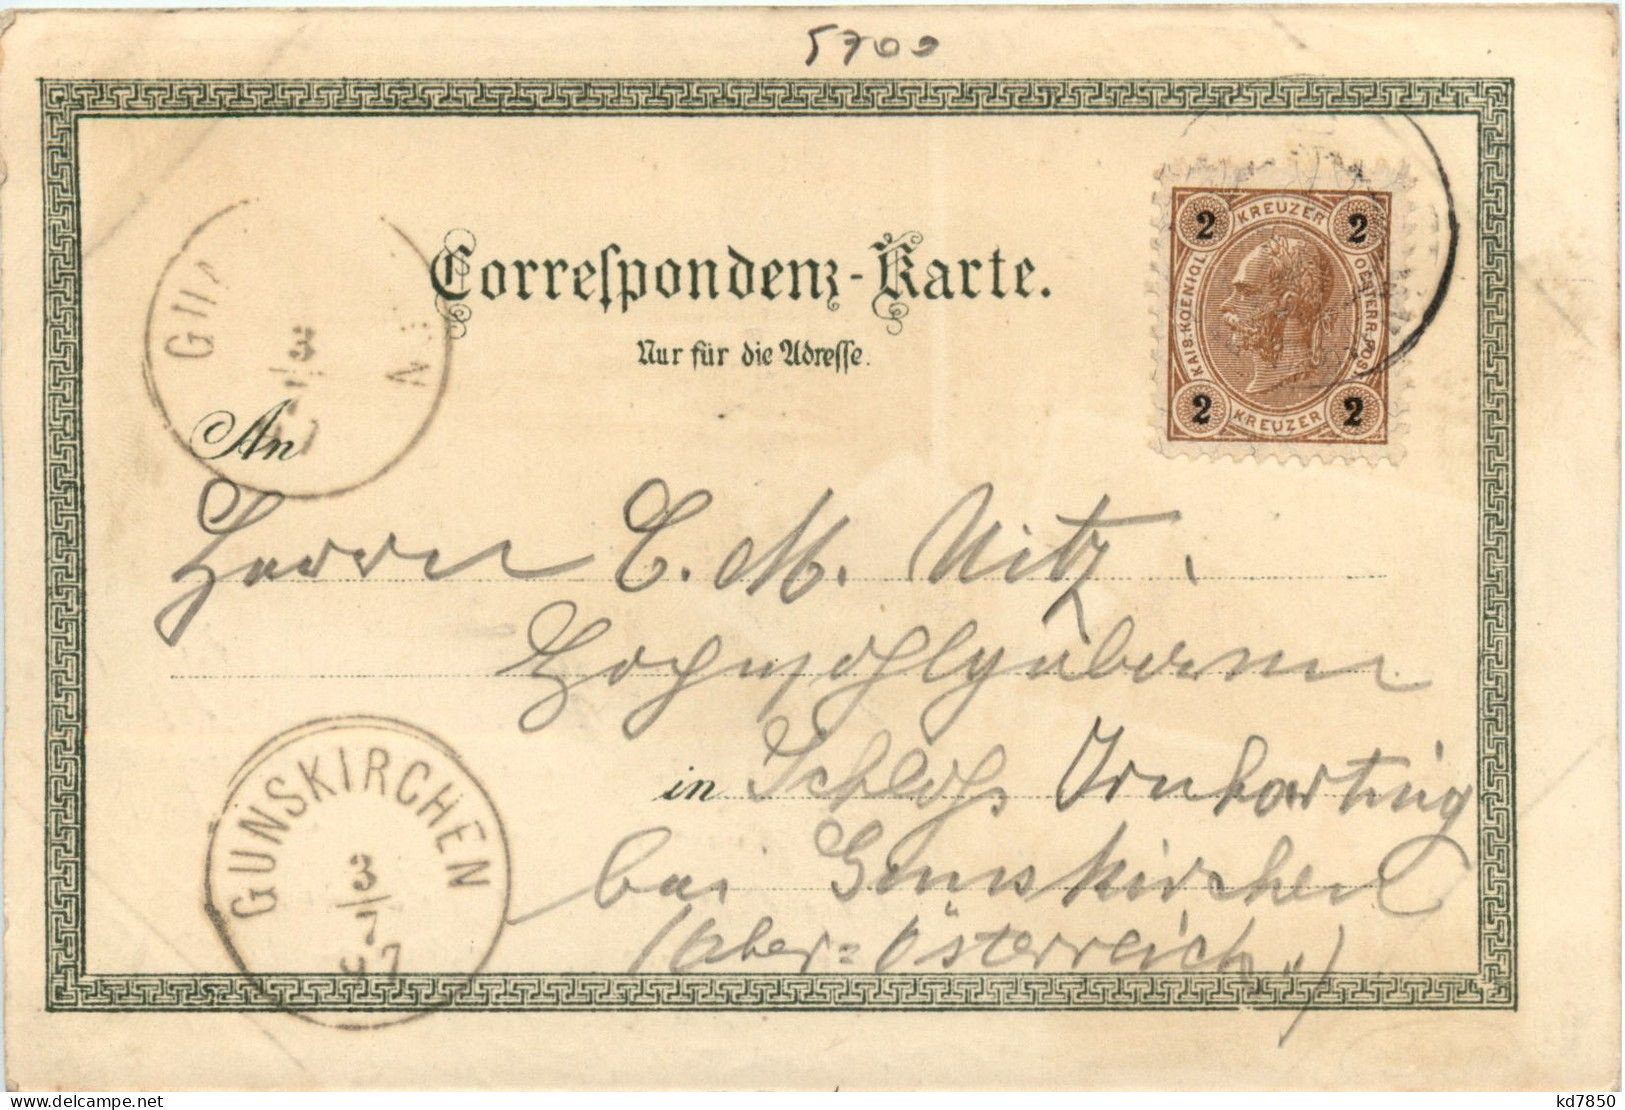 5700
Correspondenz-Karte.
Nur für die Adresse.
2 KREUZER 2
KAIS. KOENIGL. OESTERR. POST.
2 KREUZER 2
An
Herrn C. M. Nitz,
Hochwohlgeboren
in Schloß Irnharting
bei Gunskirchen
(Ober-Österreich.)
GUNSKIRCHEN
3/7
97
kd7850